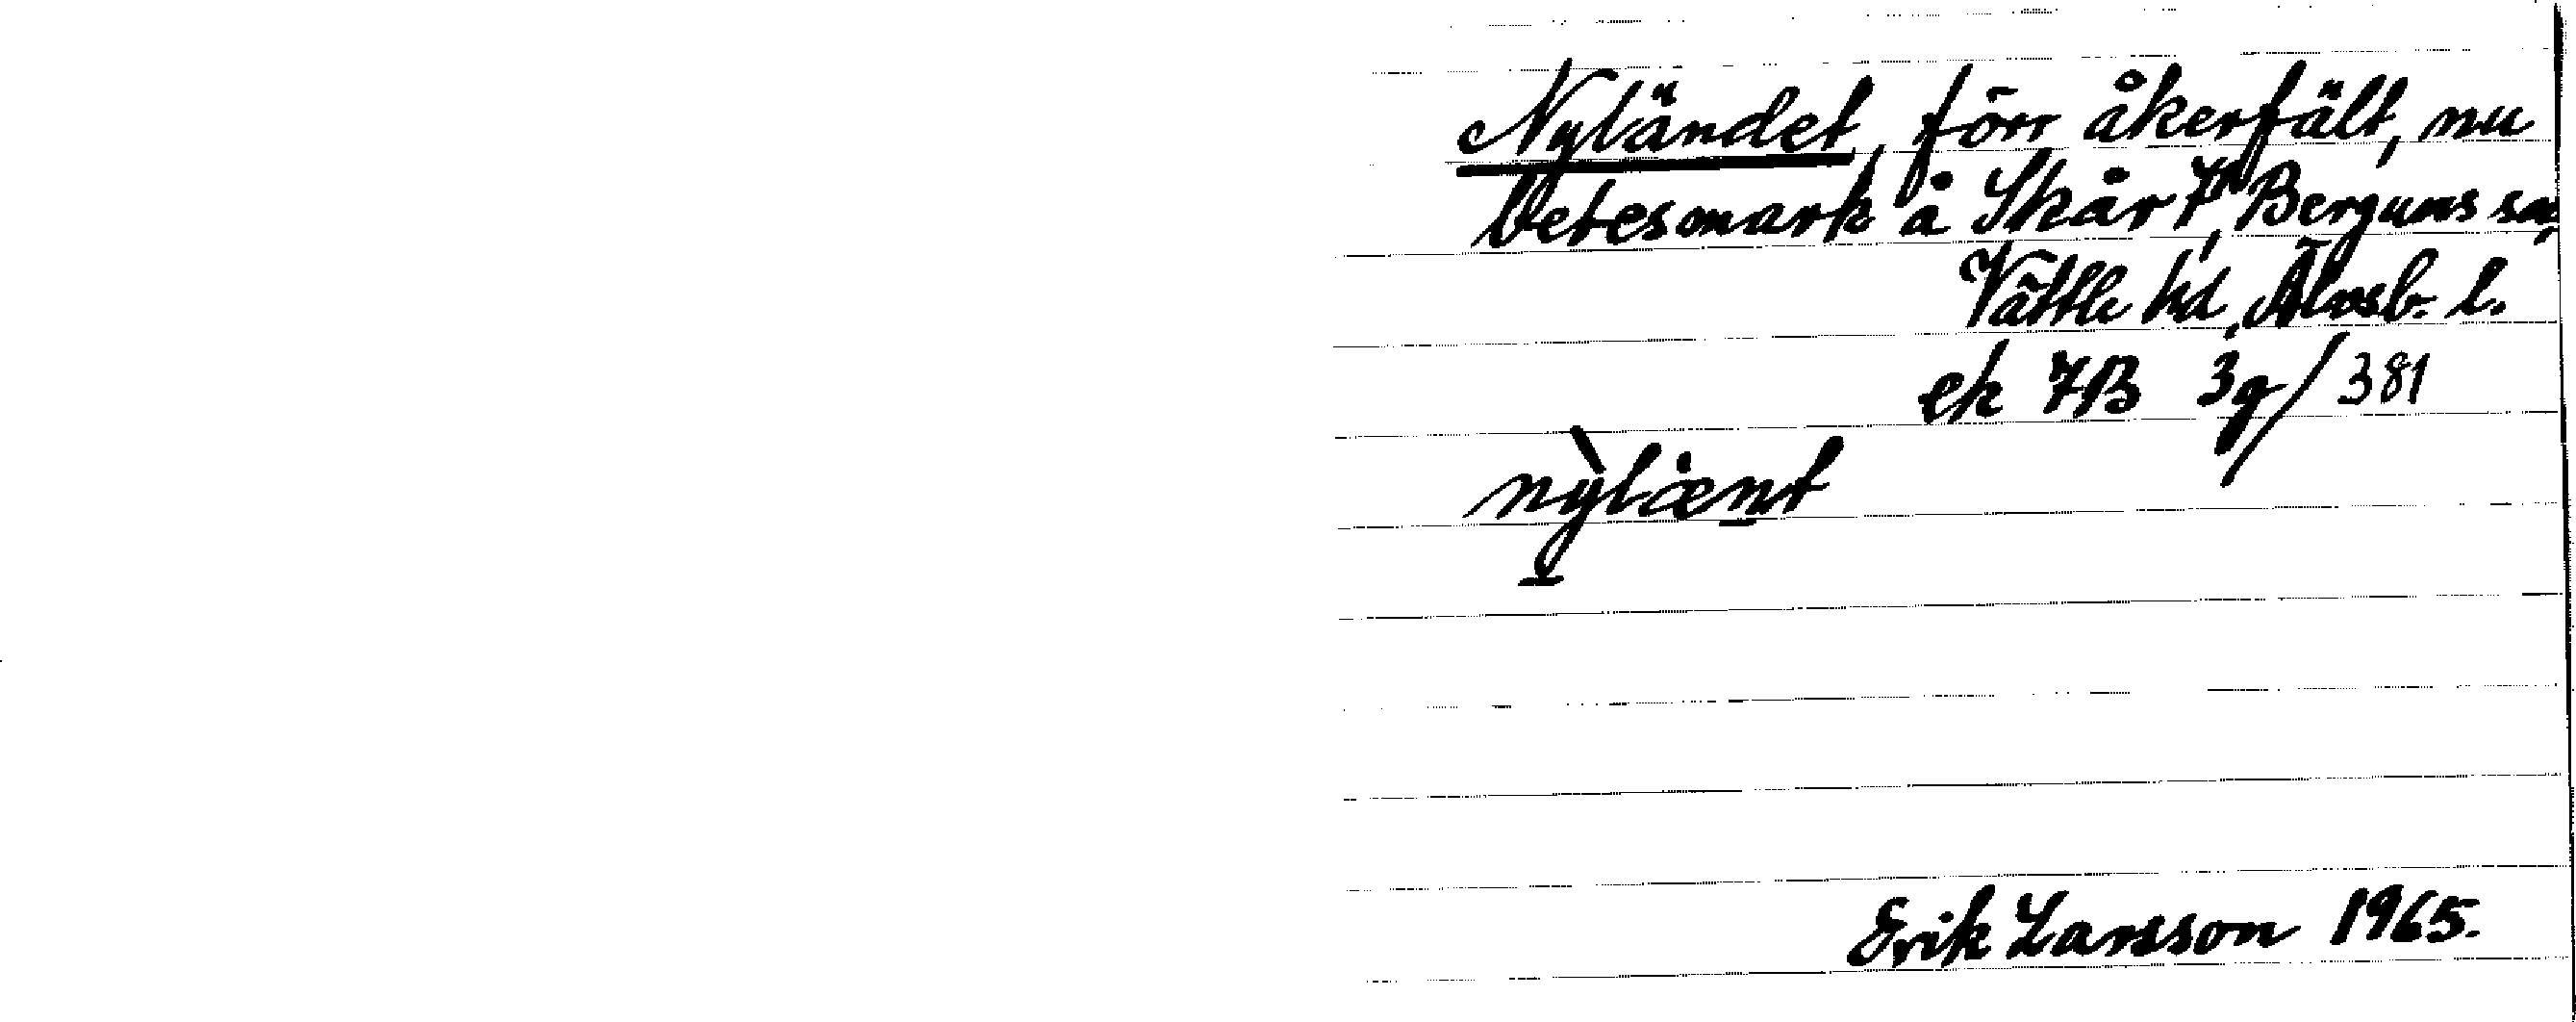 Nyländet, förr åkerfält, nu
betesmark å Skår 1⁴, Bergums sn,
Vättle hd, Älvsb. l.
ek 7B 3g/381
nỳlænt
Erik Larsson 1965.